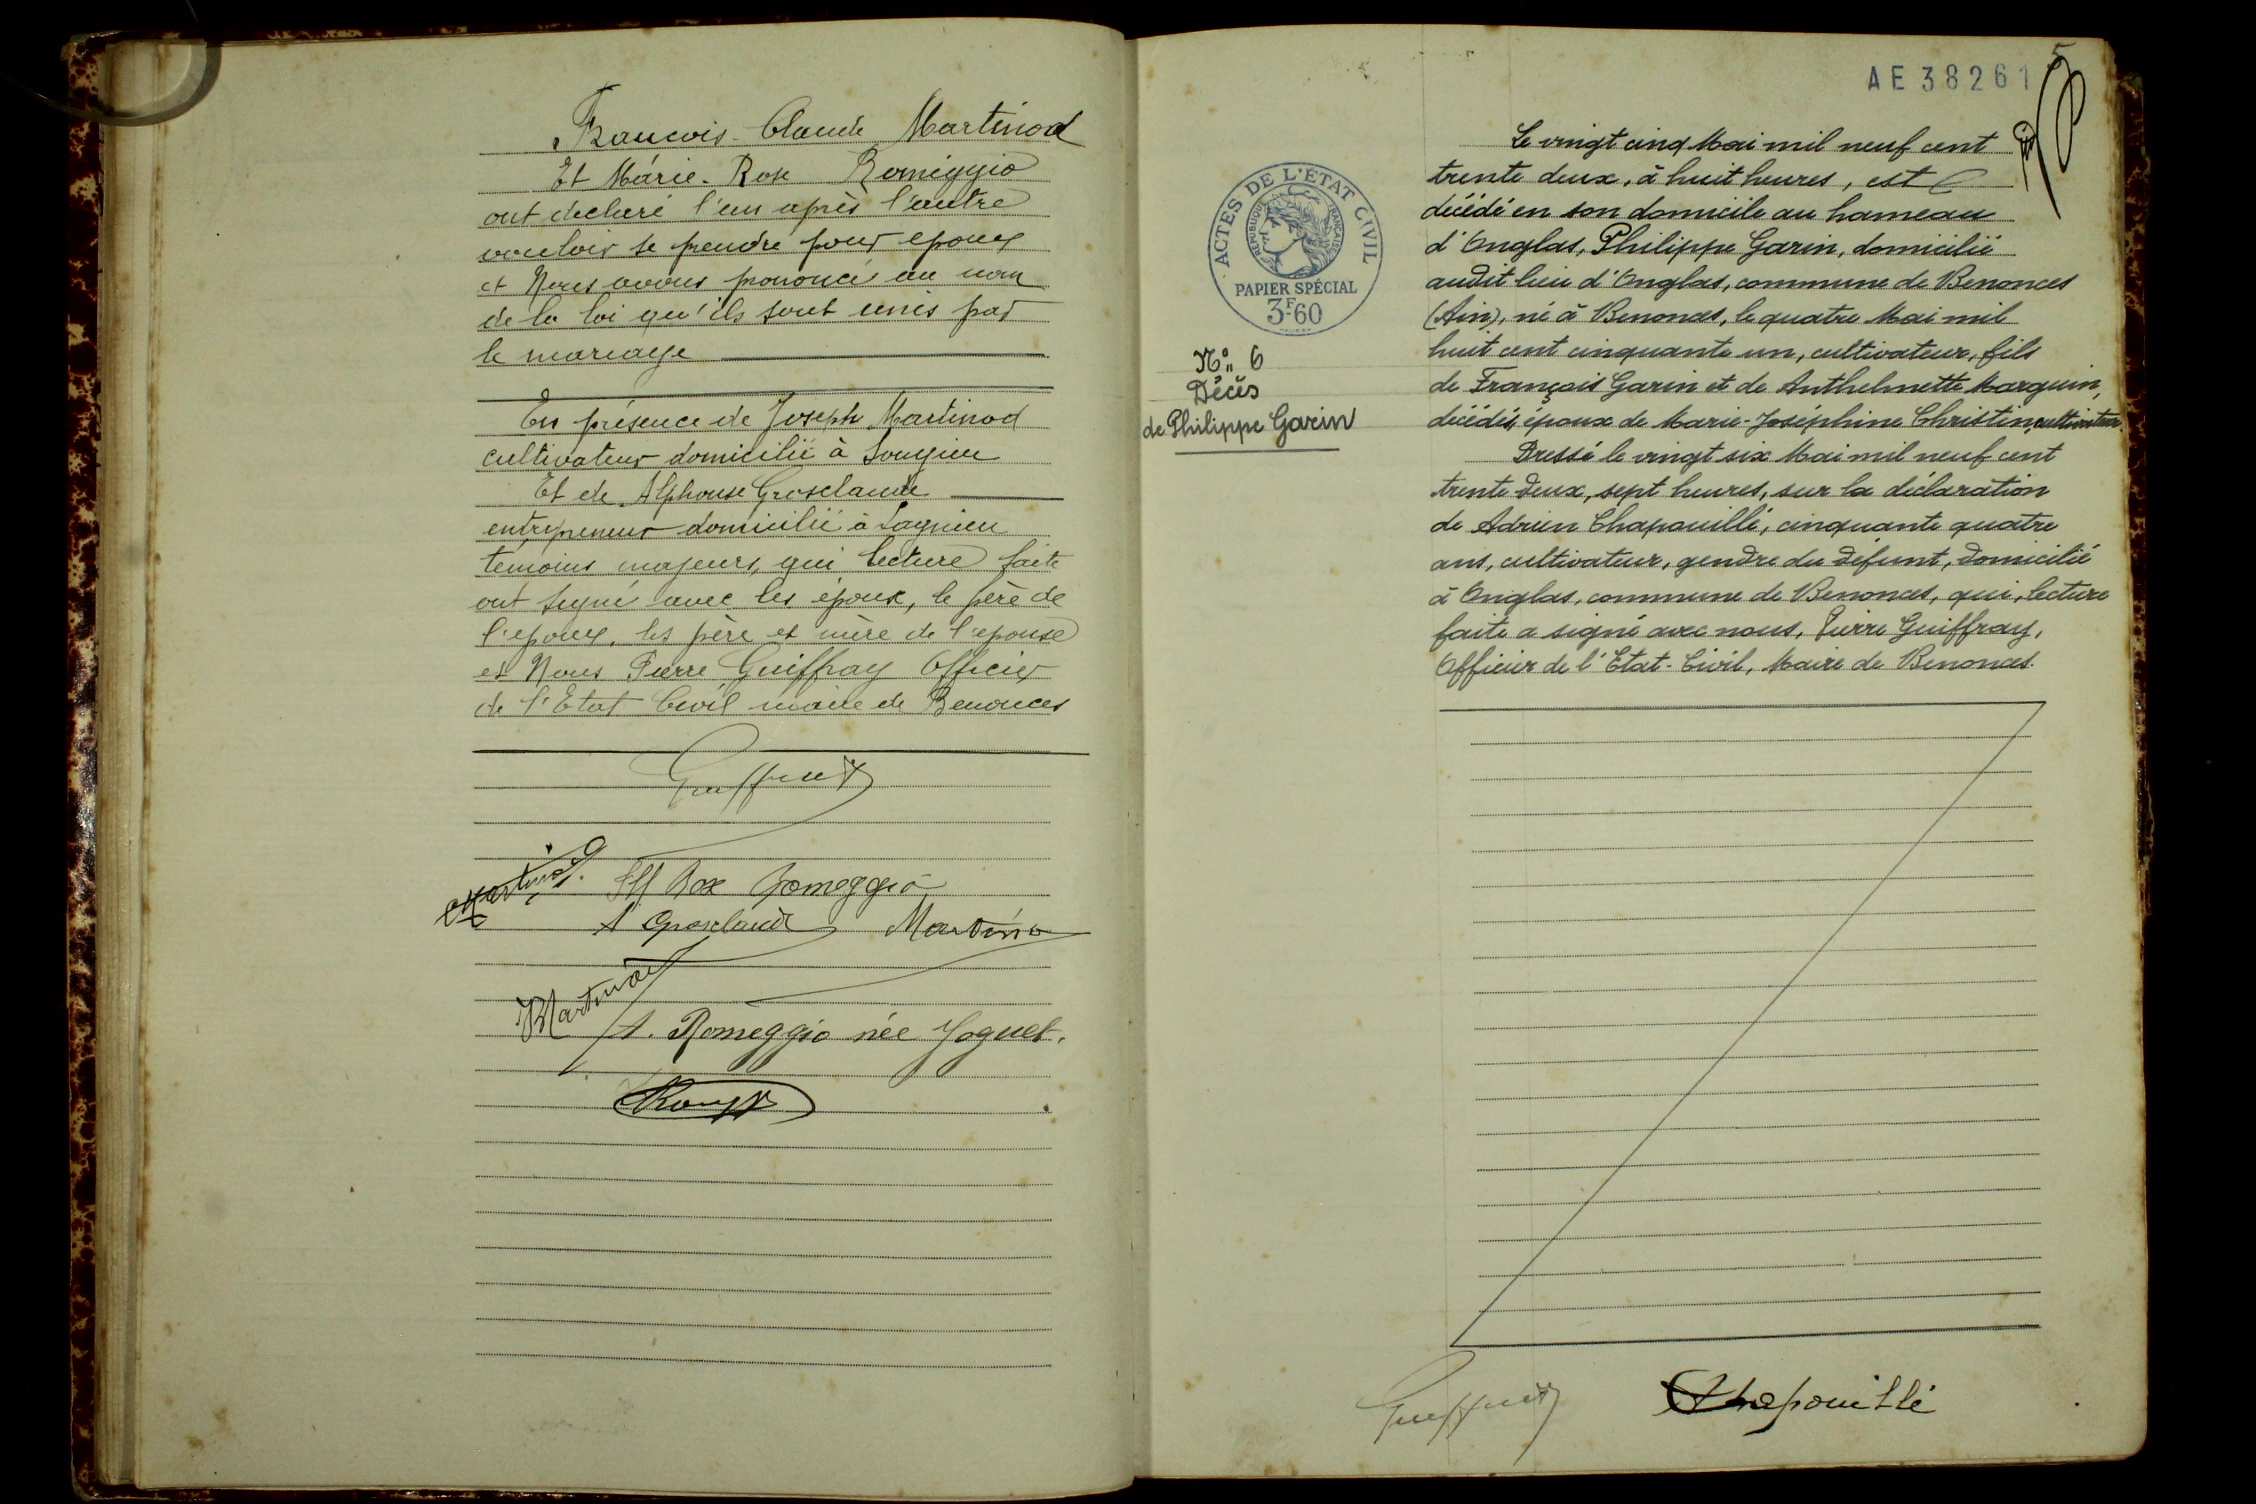 François-Claude Martinod
Et Marie-Rose Romeggio
ont declaré l'un après l'autre
vouloir se prendre pour epoux
et Nous avons prononcé au nom
de la loi qu'ils sont unis par
le mariage
En présence de Joseph Martinod
cultivateur domicilié à
Et de Alphonse Grosclaude
entrepreneur domicilié à Lagnieu
témoins majeurs, qui lecture faite
ont signé avec les époux, le père de
l'epoux, les père et mère de l'epouse
et Nous Pierre Guiffray Officier
de l'Etat Civil maire de Benonces
Guiffray
Martinod
Romeggio
A Grosclaude Martino
Martinod
A. Romeggio née Joguet.
AE 38261
5
ACTES DE L'ÉTAT CIVIL
RÉPUBLIQUE FRANÇAISE
PAPIER SPÉCIAL
3F60
No 6
Décès
de Philippe Garin
Le vingt cinq Mai mil neuf cent
trente deux, à huit heures, est
décédé en son domicile au hameau
d'Onglas, Philippe Garin, domicilié
audit lieu d'Onglas, commune de Benonces
(Ain), né à Benonces, le quatre Mai mil
huit cent cinquante un, cultivateur, fils
de François Garin et de Anthelmette Marguin,
décédés, époux de Marie-Joséphine Christin, cultivateur.
Dressé le vingt six Mai mil neuf cent
trente deux, sept heures, sur la déclaration
de Adrien Chapouillé, cinquante quatre
ans, cultivateur, gendre du défunt, domicilié
à Onglas, commune de Benonces, qui, lecture
faite a signé avec nous, Pierre Guiffray,
Officier de l'Etat-Civil, Maire de Benonces.
Guiffray
Chapouillé